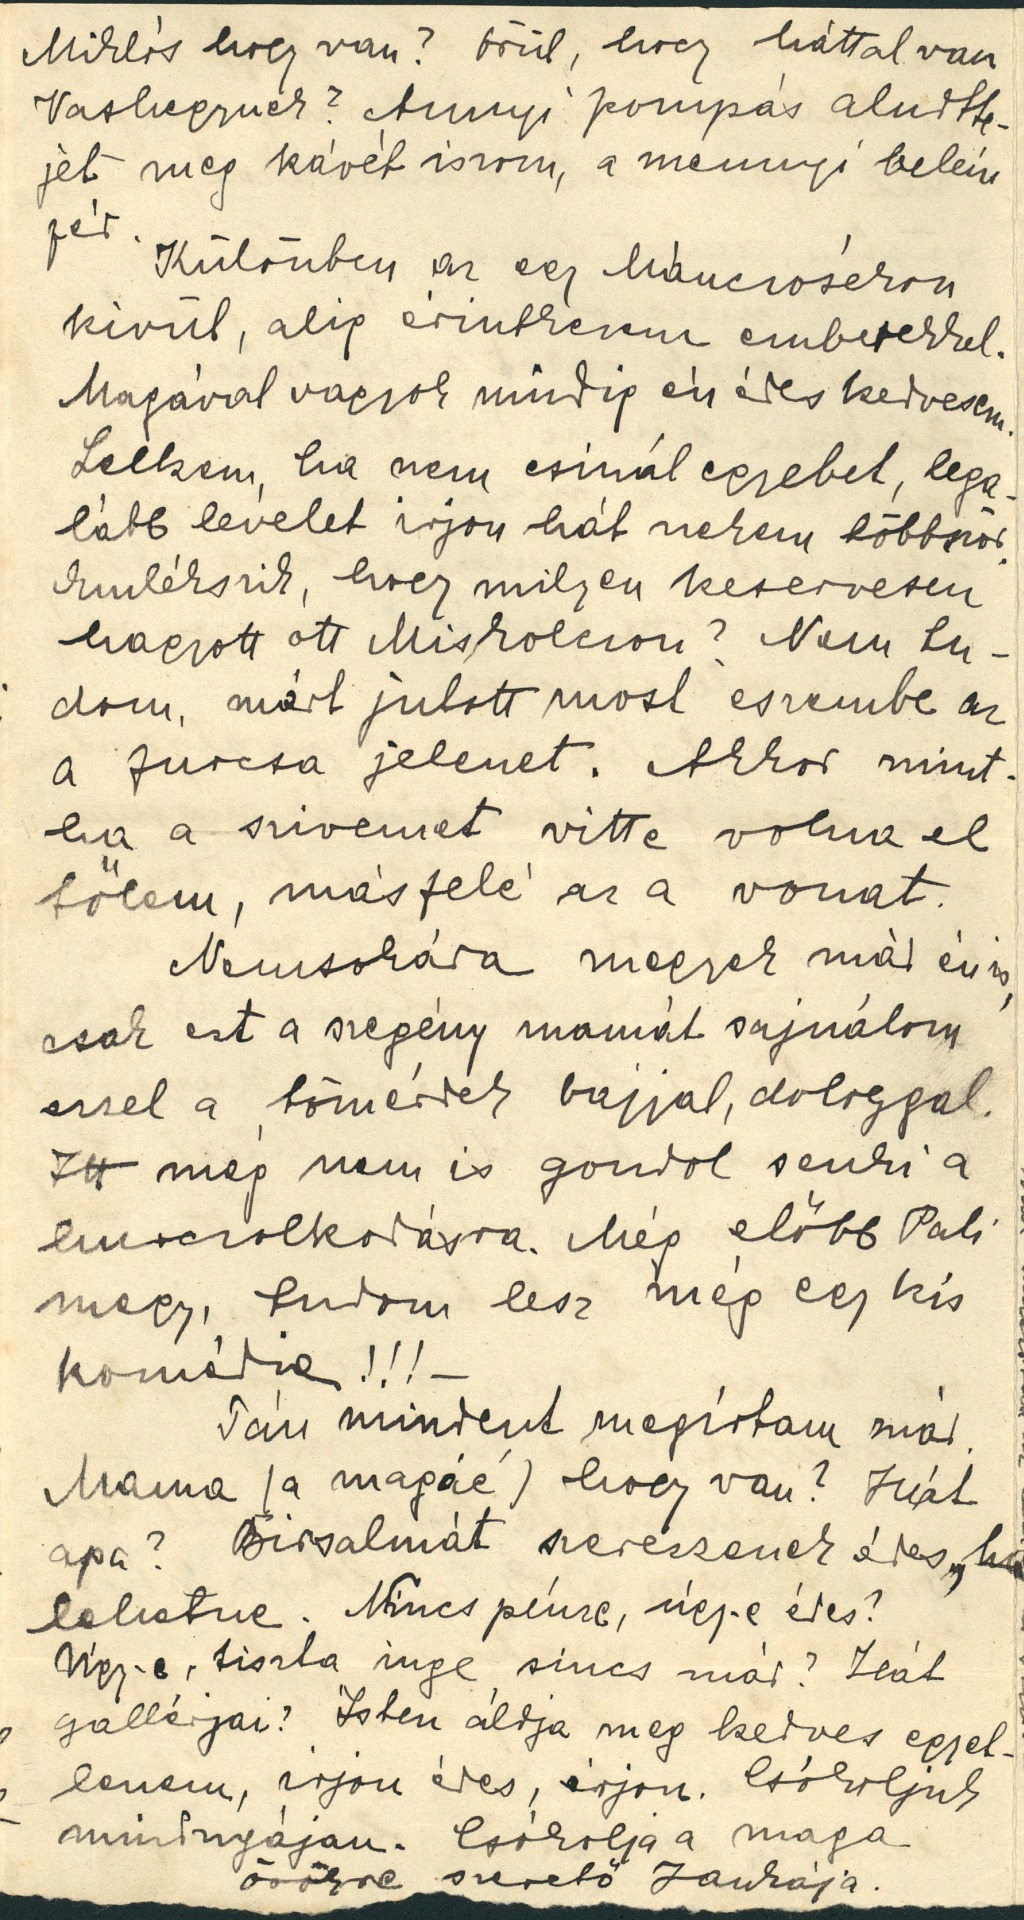 Miklós hogy van? Örül, hogy háttal van
Vashegynek? Annyi pompás aludtte-
jét meg kávét iszom, a mennyi belém
fér.
Különben az egy Máncsóékon
kivül, alig érintkezem emberekkel.
Magával vagyok mindig én édes kedvesem.
Lelkem, ha nem csinál egyebet, lega-
lább levelet irjon hát nekem többször.
Emlékszik, hogy milyen keservesen
hagyott ott Miskolczon? Nem tu-
dom, mért jutott most eszembe az
a furcsa jelenet. Akkor mint-
ha a szivemet vitte volna el
tőlem, másfelé az a vonat.
Nemsokára megyek már én is,
csak ezt a szegény mamát sajnálom
ezzel a tömérdek bajjal, dologgal.
Itt még nem is gondol senki a
hurczolkodásra. Még előbb Pali
megy, tudom lesz még egy kis
komédia!!! -
Tán mindent megírtam már.
Mama (a magáé) hogy van? Hát
apa? Birsalmát szerezzenek édes, ha
lehetne. Nincs pénze, úgy-e édes?
Úgy-e, tiszta inge sincs már? Hát
gallérjai? Isten áldja meg kedves egyet-
lenem, irjon édes, irjon. Csókoljuk
mindnyájan. Csókolja a maga
örökre szerető Jankája.